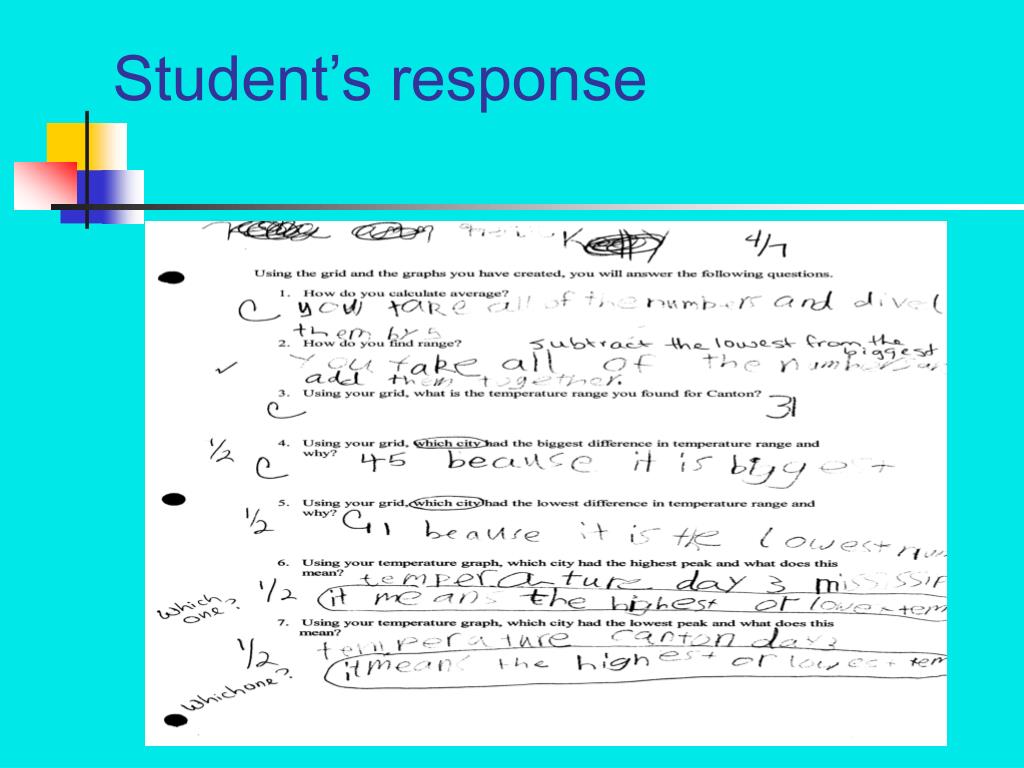 Student’s response
4/7
Using the grid and the graphs you have created, you will answer the following questions.
1. How do you calculate average?
C you take all of the numbers and divel
them by 5
2. How do you find range? subtract the lowest from the biggest
✓ You take all of the numbers an
add them together.
3. Using your grid, what is the temperature range you found for Canton? 31
C
4. Using your grid, which city had the biggest difference in temperature range and
1/2 C why? 45 beacause it is biggest
5. Using your grid, which city had the lowest difference in temperature range and
1/2 why? beause it is the lowest num
6. Using your temperature graph, which city had the highest peak and what does this
mean? temperature day 3 mississip
which one? 1/2 it means the highest or lowest tem
7. Using your temperature graph, which city had the lowest peak and what does this
mean?
temperature canton day 3
1/2 it means the highest or lowest tem
Which one?